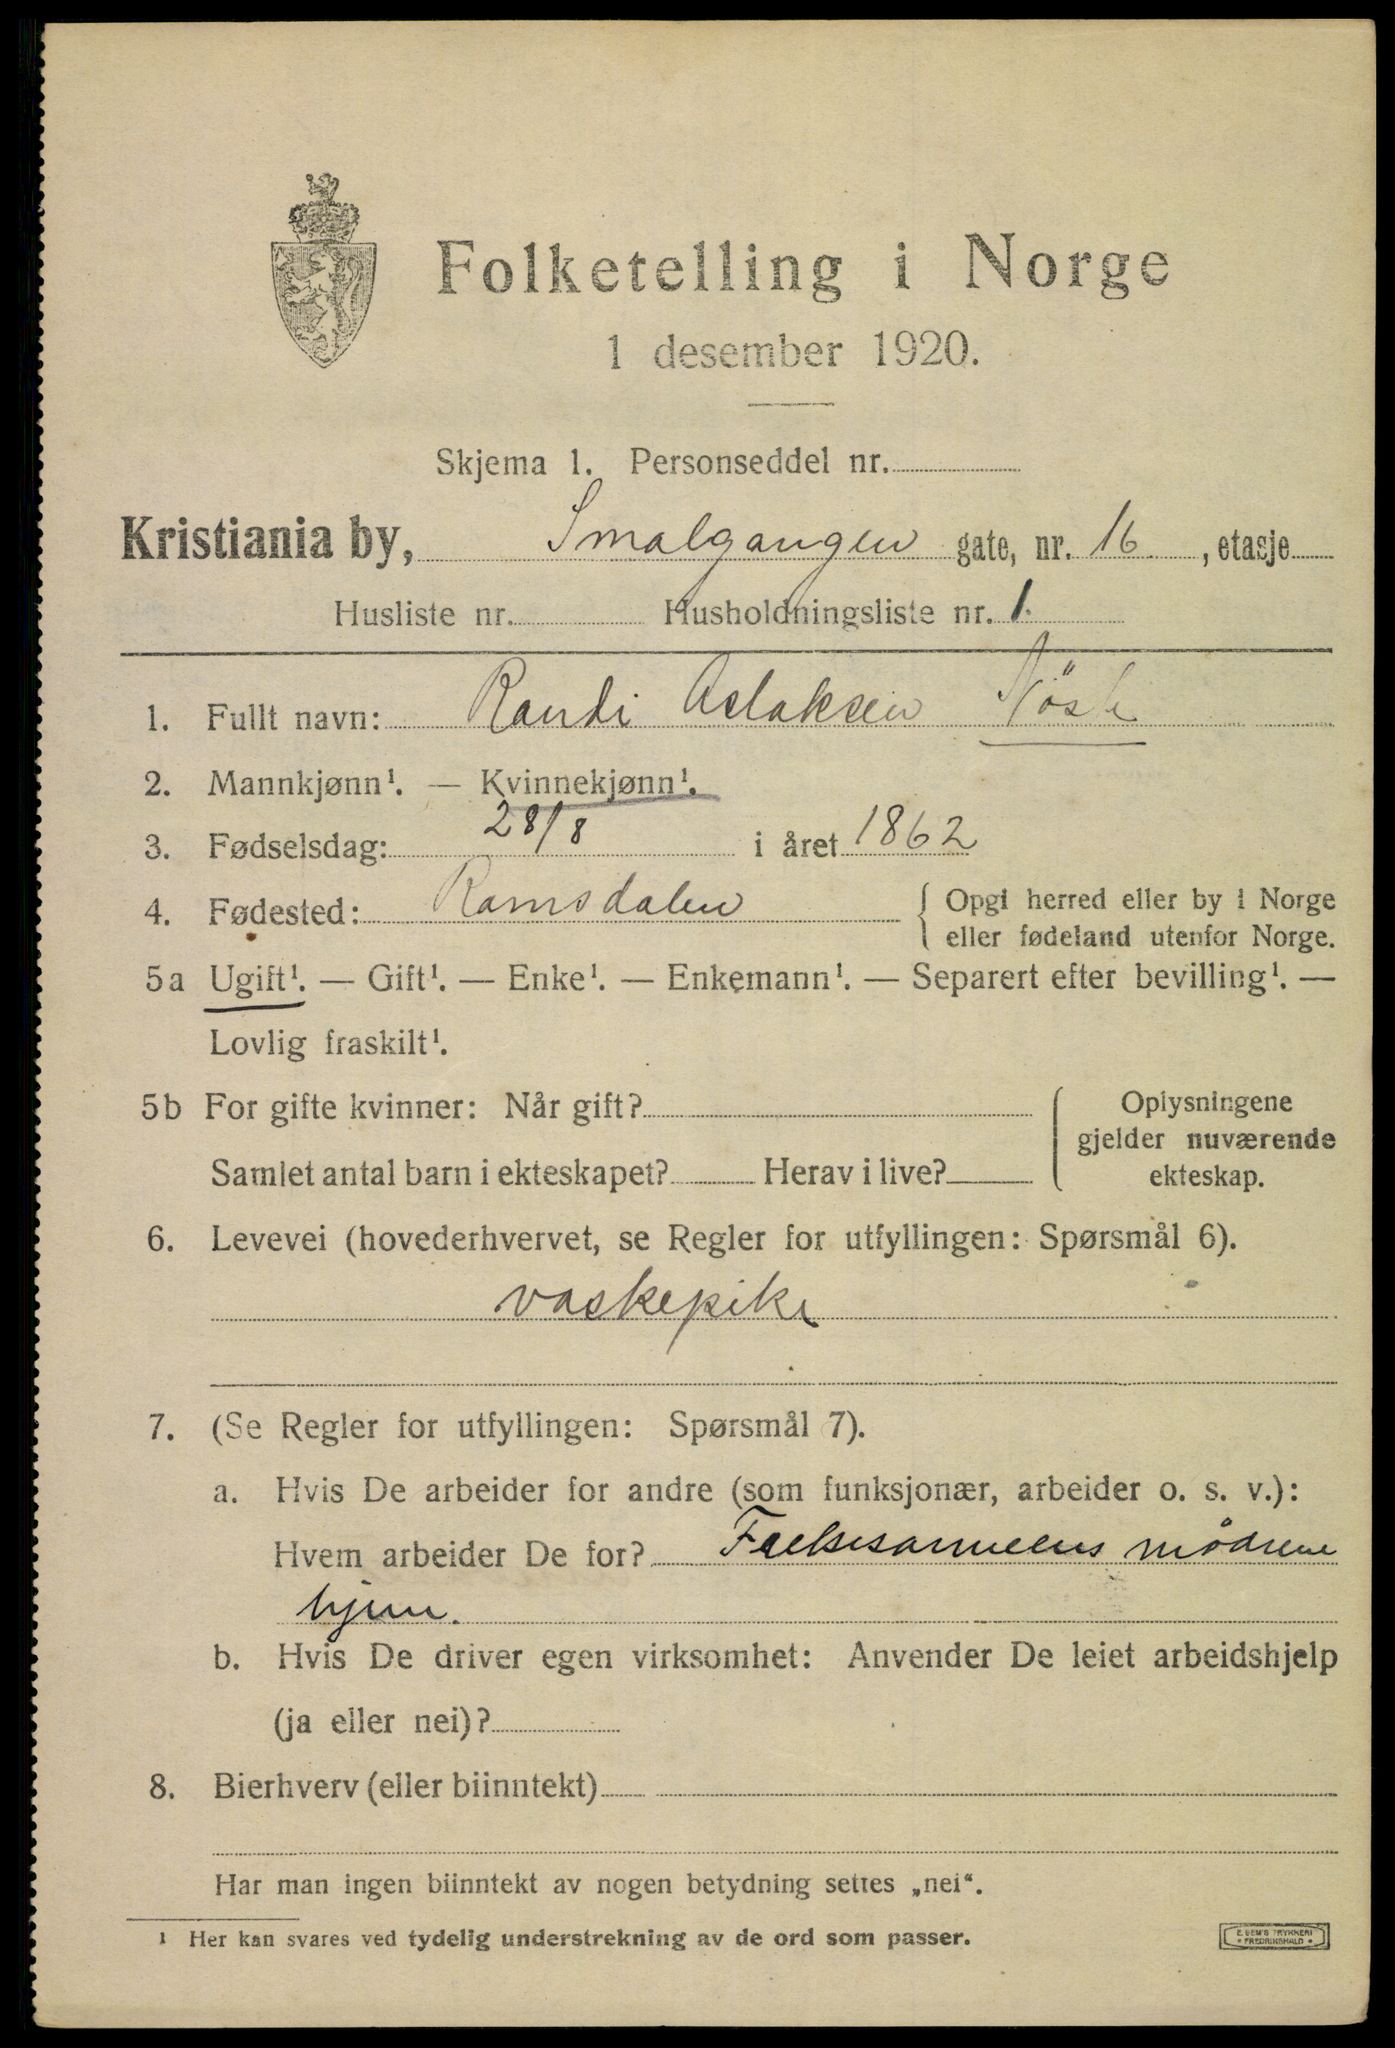 Folketelling i Norge
1 desember 1920.
Skjema 1. Personseddel nr.
Kristiania by, Smalgangen gate, nr. 16, etasje
Husliste nr. Husholdningsliste nr. 1.
1. Fullt navn: Randi Aslaksen Nöste
2. Mannkjønn¹. — Kvinnekjønn¹.
3. Fødselsdag: 28/8 i året 1862
4. Fødested: Romsdalen { Opgi herred eller by i Norge
eller fødeland utenfor Norge.
5a Ugift¹. — Gift¹. — Enke¹. — Enkemann¹. — Separert efter bevilling¹. —
Lovlig fraskilt¹.
5b For gifte kvinner: Når gift? { Oplysningene
gjelder nuværende
Samlet antal barn i ekteskapet? Herav i live? ekteskap.
6. Levevei (hovederhvervet, se Regler for utfyllingen: Spørsmål 6).
vaskepike
7. (Se Regler for utfyllingen: Spørsmål 7).
a. Hvis De arbeider for andre (som funksjonær, arbeider o. s. v.):
Hvem arbeider De for? mödrene
hjem.
b. Hvis De driver egen virksomhet: Anvender De leiet arbeidshjelp
(ja eller nei)?
8. Bierhverv (eller biinntekt)
Har man ingen biinntekt av nogen betydning settes „nei“.
¹ Her kan svares ved tydelig understrekning av de ord som passer.
E. SEM'S TRYKKERI
* FREDRIKSHALD *